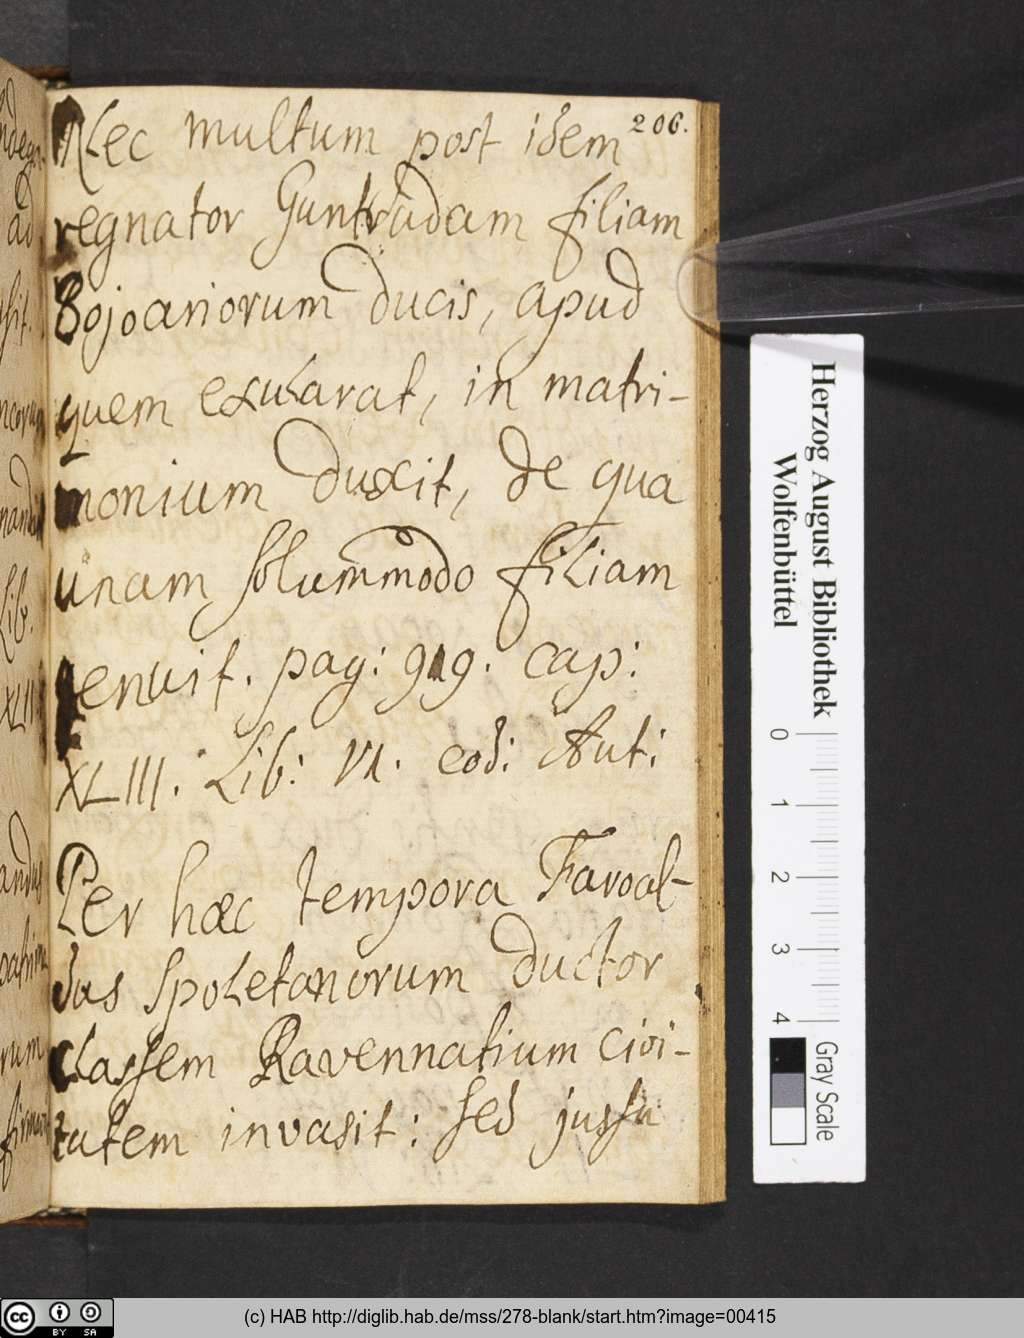 206.
Nec multum post idem
regnator Guntrudam filiam
Bojoariorum ducis, apud
quem exularat, in matri-
monium duxit, de qua
unam solummodo filiam
genuit. pag: 919. cap:
XLIII. Lib: VI. eod: Aut:
Per hæc tempora Faroal-
dus Spoletanorum ductor
classem Ravennatium civi-
tatem invasit: sed jussu
ad
Lib.
rum
Herzog August Bibliothek
Wolfenbüttel
0 1 2 3 4
Gray Scale
cc BY SA
(c) HAB http://diglib.hab.de/mss/278-blank/start.htm?image=00415